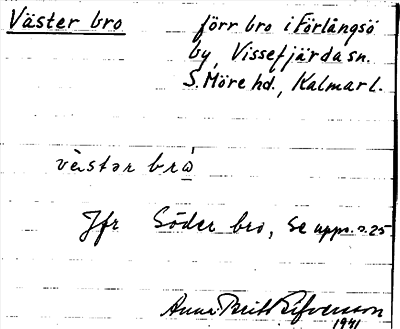 Väster bro
förr bro i Förlångsö
by, Vissefjärda sn.
S. Möre hd., Kalmar l.
vèstər brω
Jfr Söder bro, se upps. s. 25
Anna Britt
1941